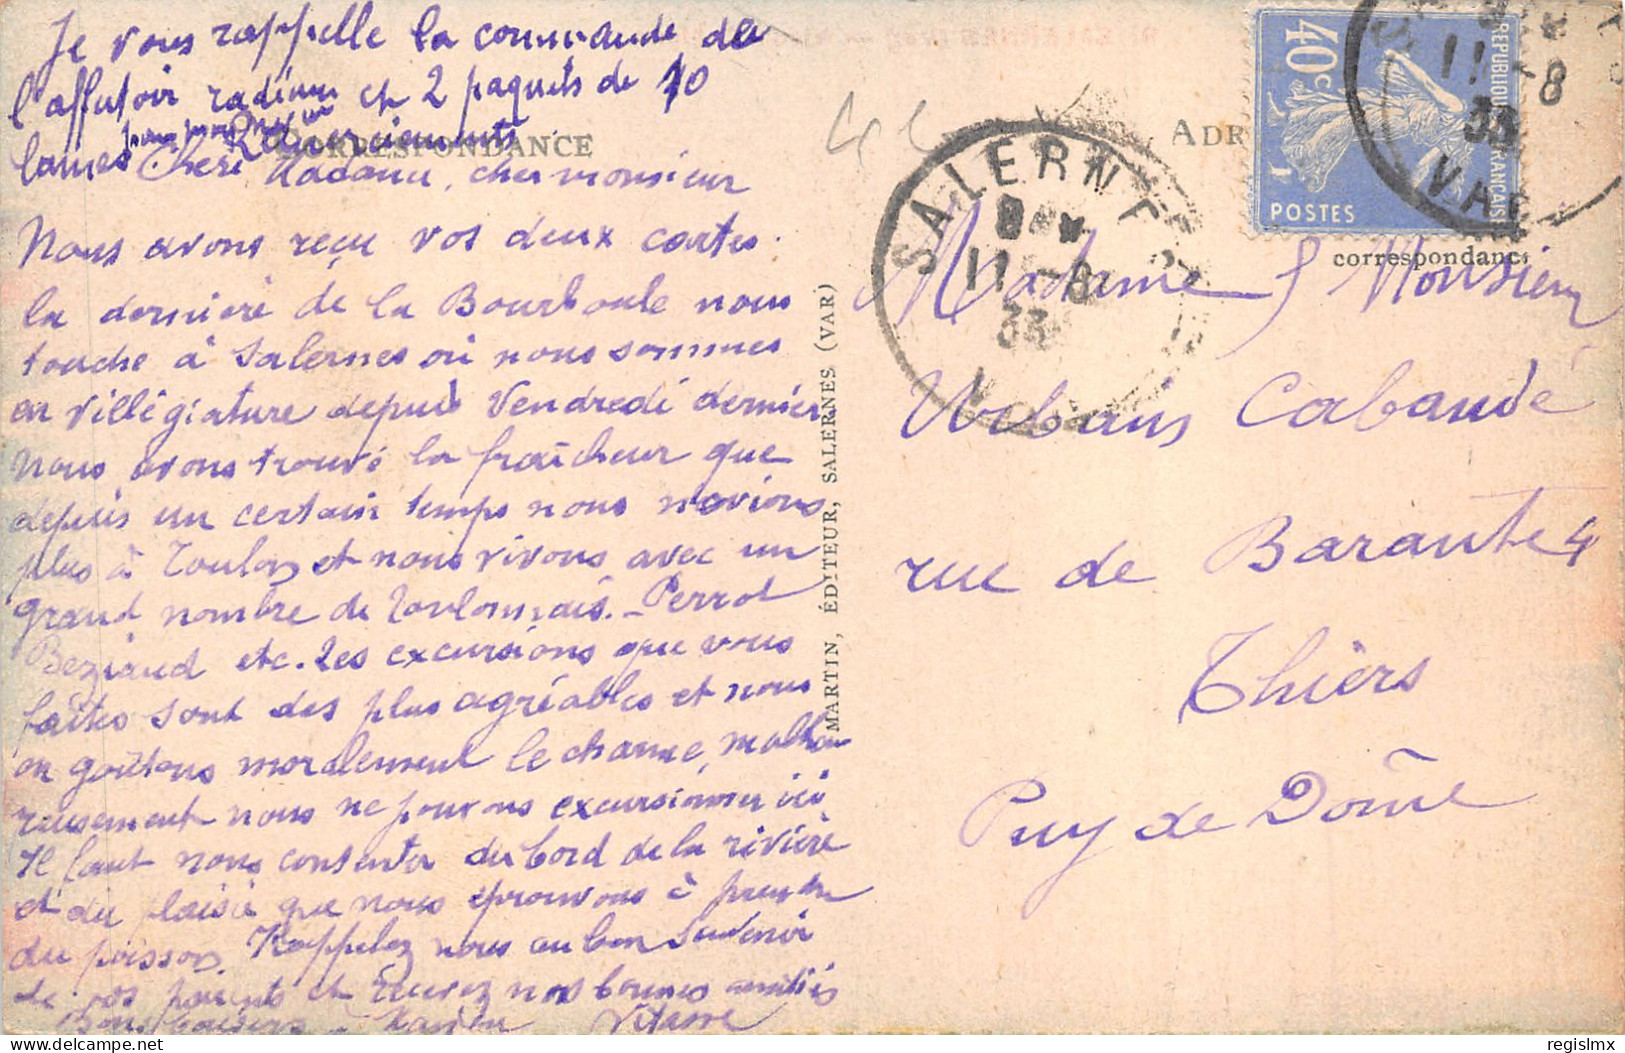 Je vous rappelle la commande de
l'affutoir radium et 2 paquets de 10
lames Remerciements
CORRESPONDANCE
Cheri Madame, cher monsieur
Nous avons reçu vos deux cartes.
la dernière de la Bourboule nous
touche à Salernes où nous sommes
en villégiature depuis Vendredi dernier
Nous avons trouvé la fraîcheur que
depuis un certain temps nous n'avions
plus à Toulon et nous vivons avec un
grand nombre de Toulonnais. - Perrot
Beziaud etc. Les excursions que vous
faites sont des plus agréables et nous
en goûtons moralement le charme, malheu
reusement nous ne pouvons excursionner ici
Il faut nous contenter du bord de la rivière
et du plaisir que nous éprouvons à prendre
du poisson. Rappelez nous au bon souvenir
de vos parents et recevez nos bonnes amitiés
Bons baisers Vitasse
MARTIN, ÉDITEUR, SALERNES (VAR)
ADR
correspondance
REPUBLIQUE FRANÇAISE
40c
POSTES
11 -8
33
VAR
SALERNES
11 -8
33
Madame & Monsieur
Urbain Cabaudé
rue de Barante 4
Thiers
Puy de Dôme
regislmx
delcampe.net